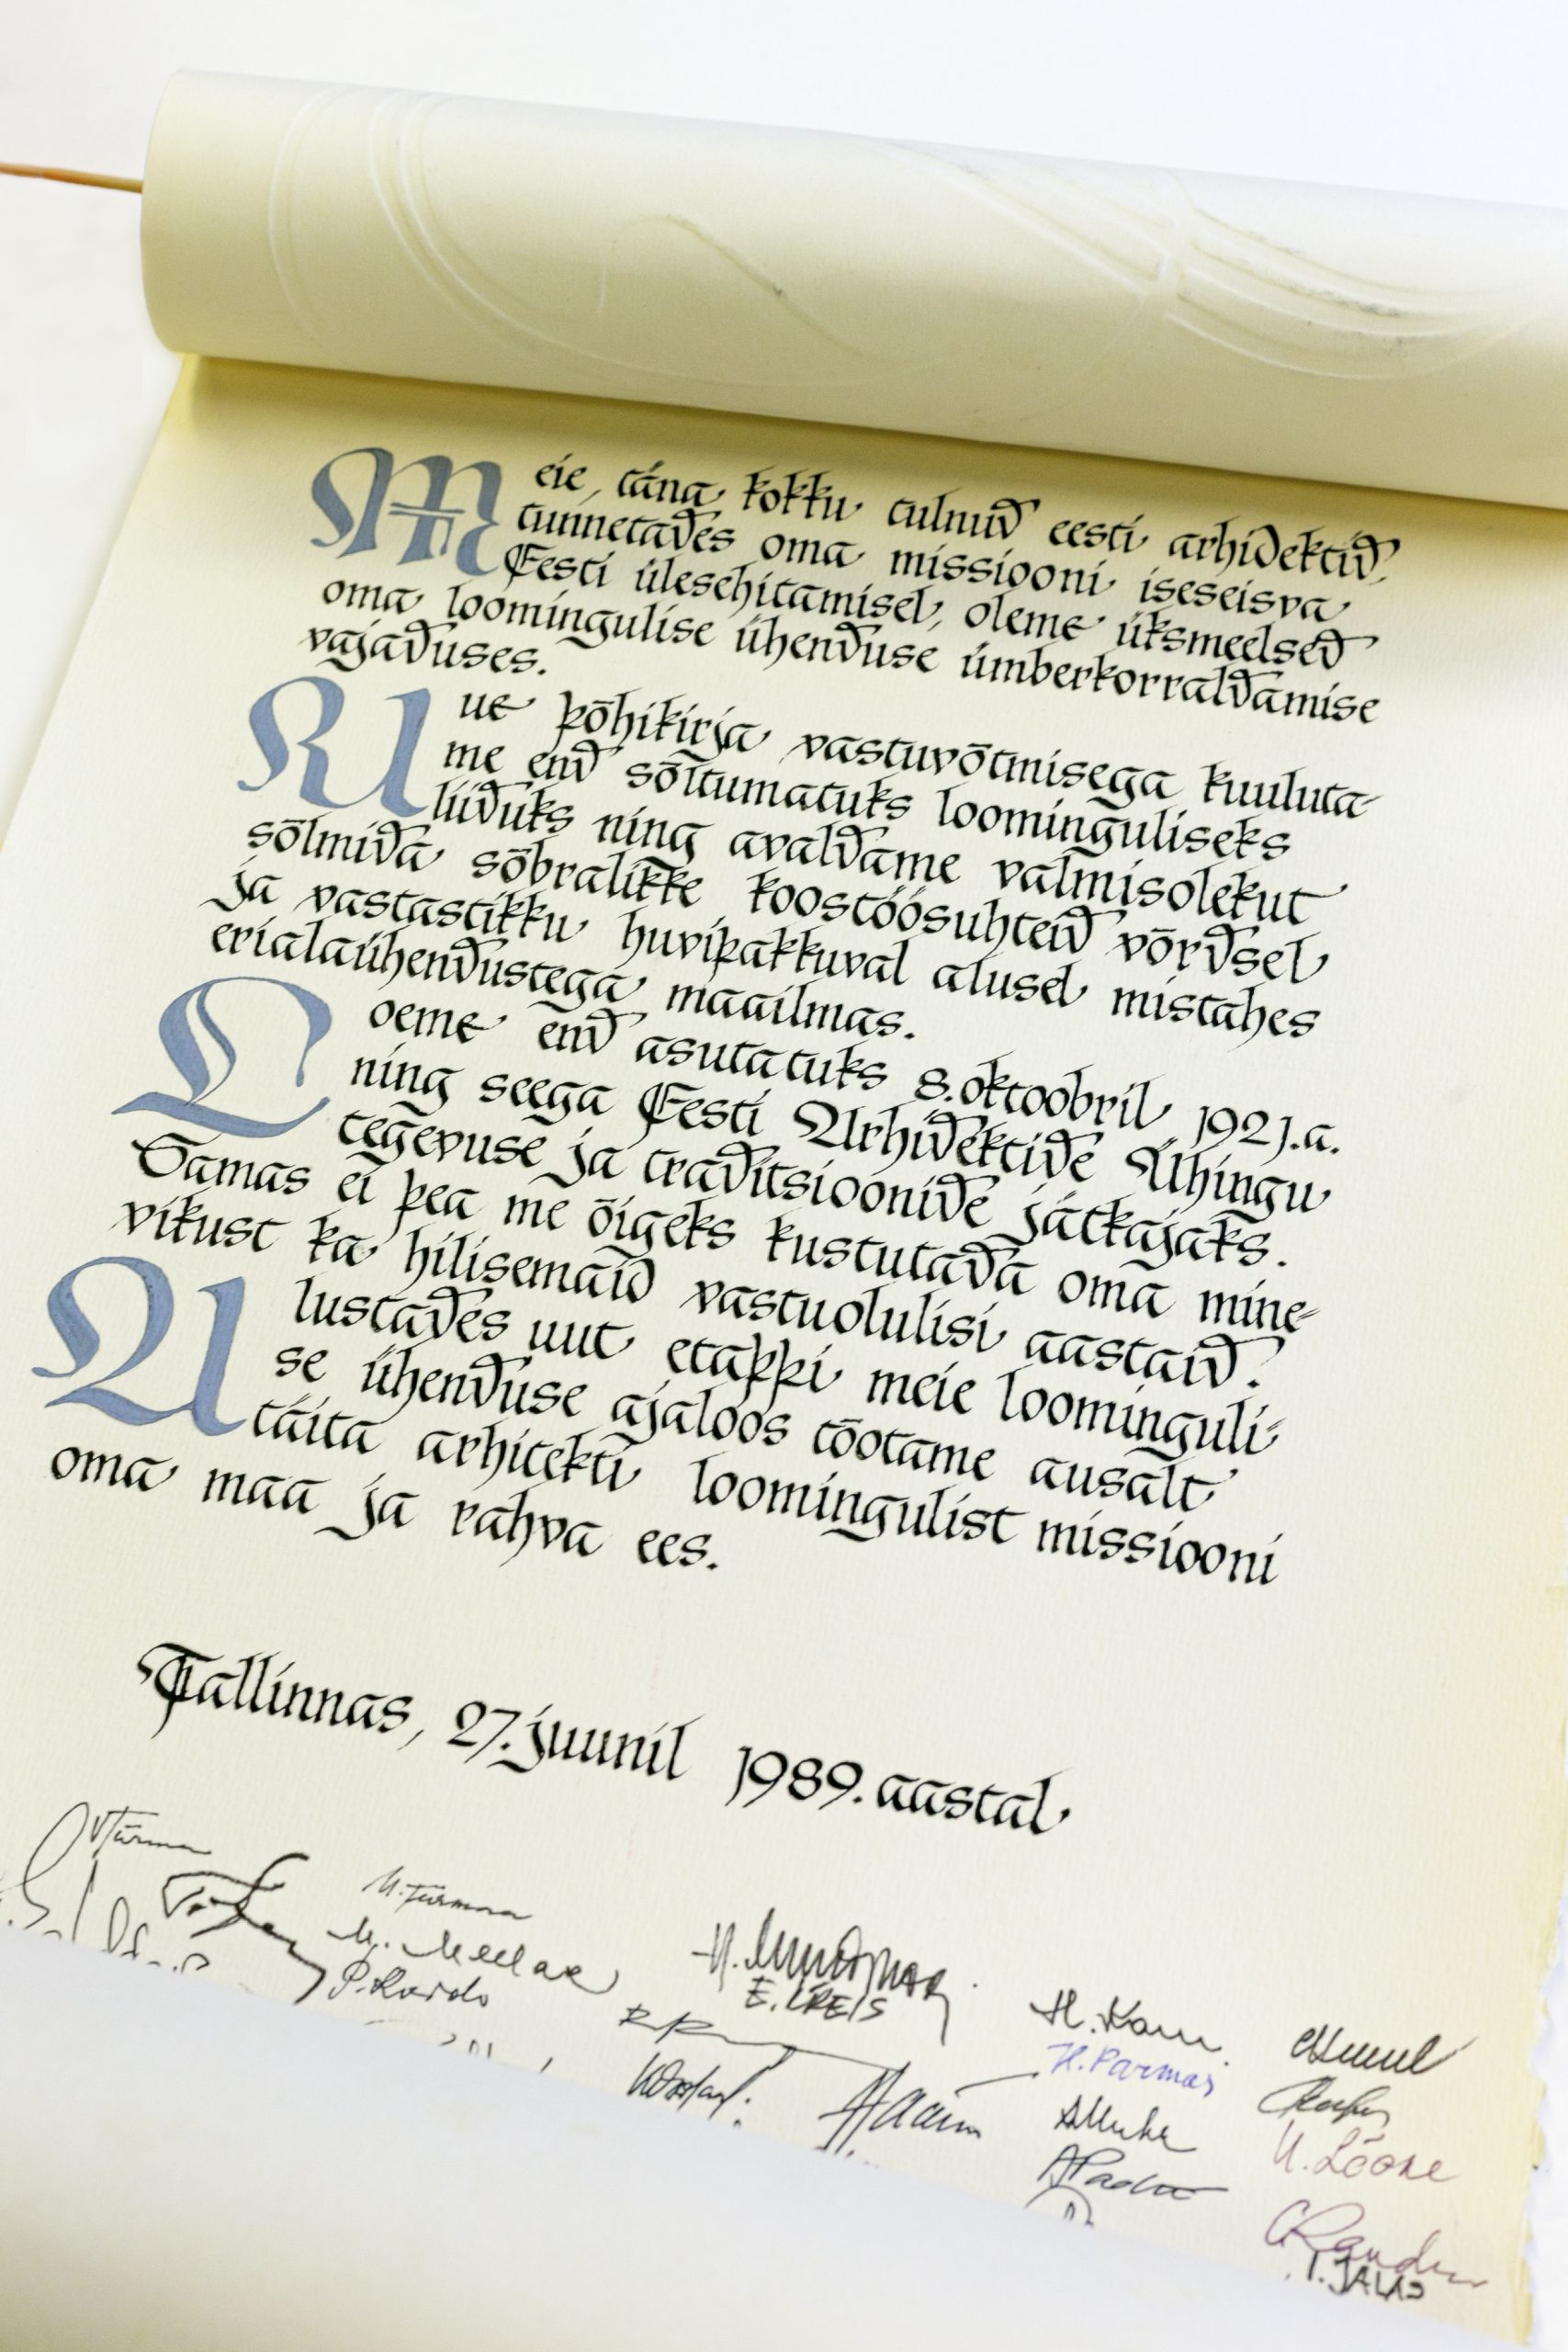 Meie, täna kokku tulnud eesti arhidektid,
tunnetades oma missiooni iseseisva
Eesti ülesehitamisel, oleme üksmeelsed
oma loomingulise ühenduse ümberkorraldamise
vajaduses.
Uue põhikirja vastuvõtmisega kuuluta-
me end sõltumatuks loominguliseks
liiduks ning avaldame valmisolekut
sõlmida sõbralikke koostöösuhteid võrdsel
ja vastastikku huvipakkuval alusel mistahes
erialaühendustega maailmas.
Loeme end asutatuks 8. oktoobril 1921.a.
ning seega Eesti Arhidektide Ühingu
tegevuse ja traditsioonide jätkajaks.
Samas ei pea me õigeks kustutada oma mine-
vikust ka hilisemaid vastuolulisi aastaid.
Alustades uut etappi meie loominguli-
se ühenduse ajaloos tõotame ausalt
täita arhitekti loomingulist missiooni
oma maa ja rahva ees.
Tallinnas, 27. juunil 1989. aastal
M. Meelak
E. KREIS
H. Parmas
T. JALAS